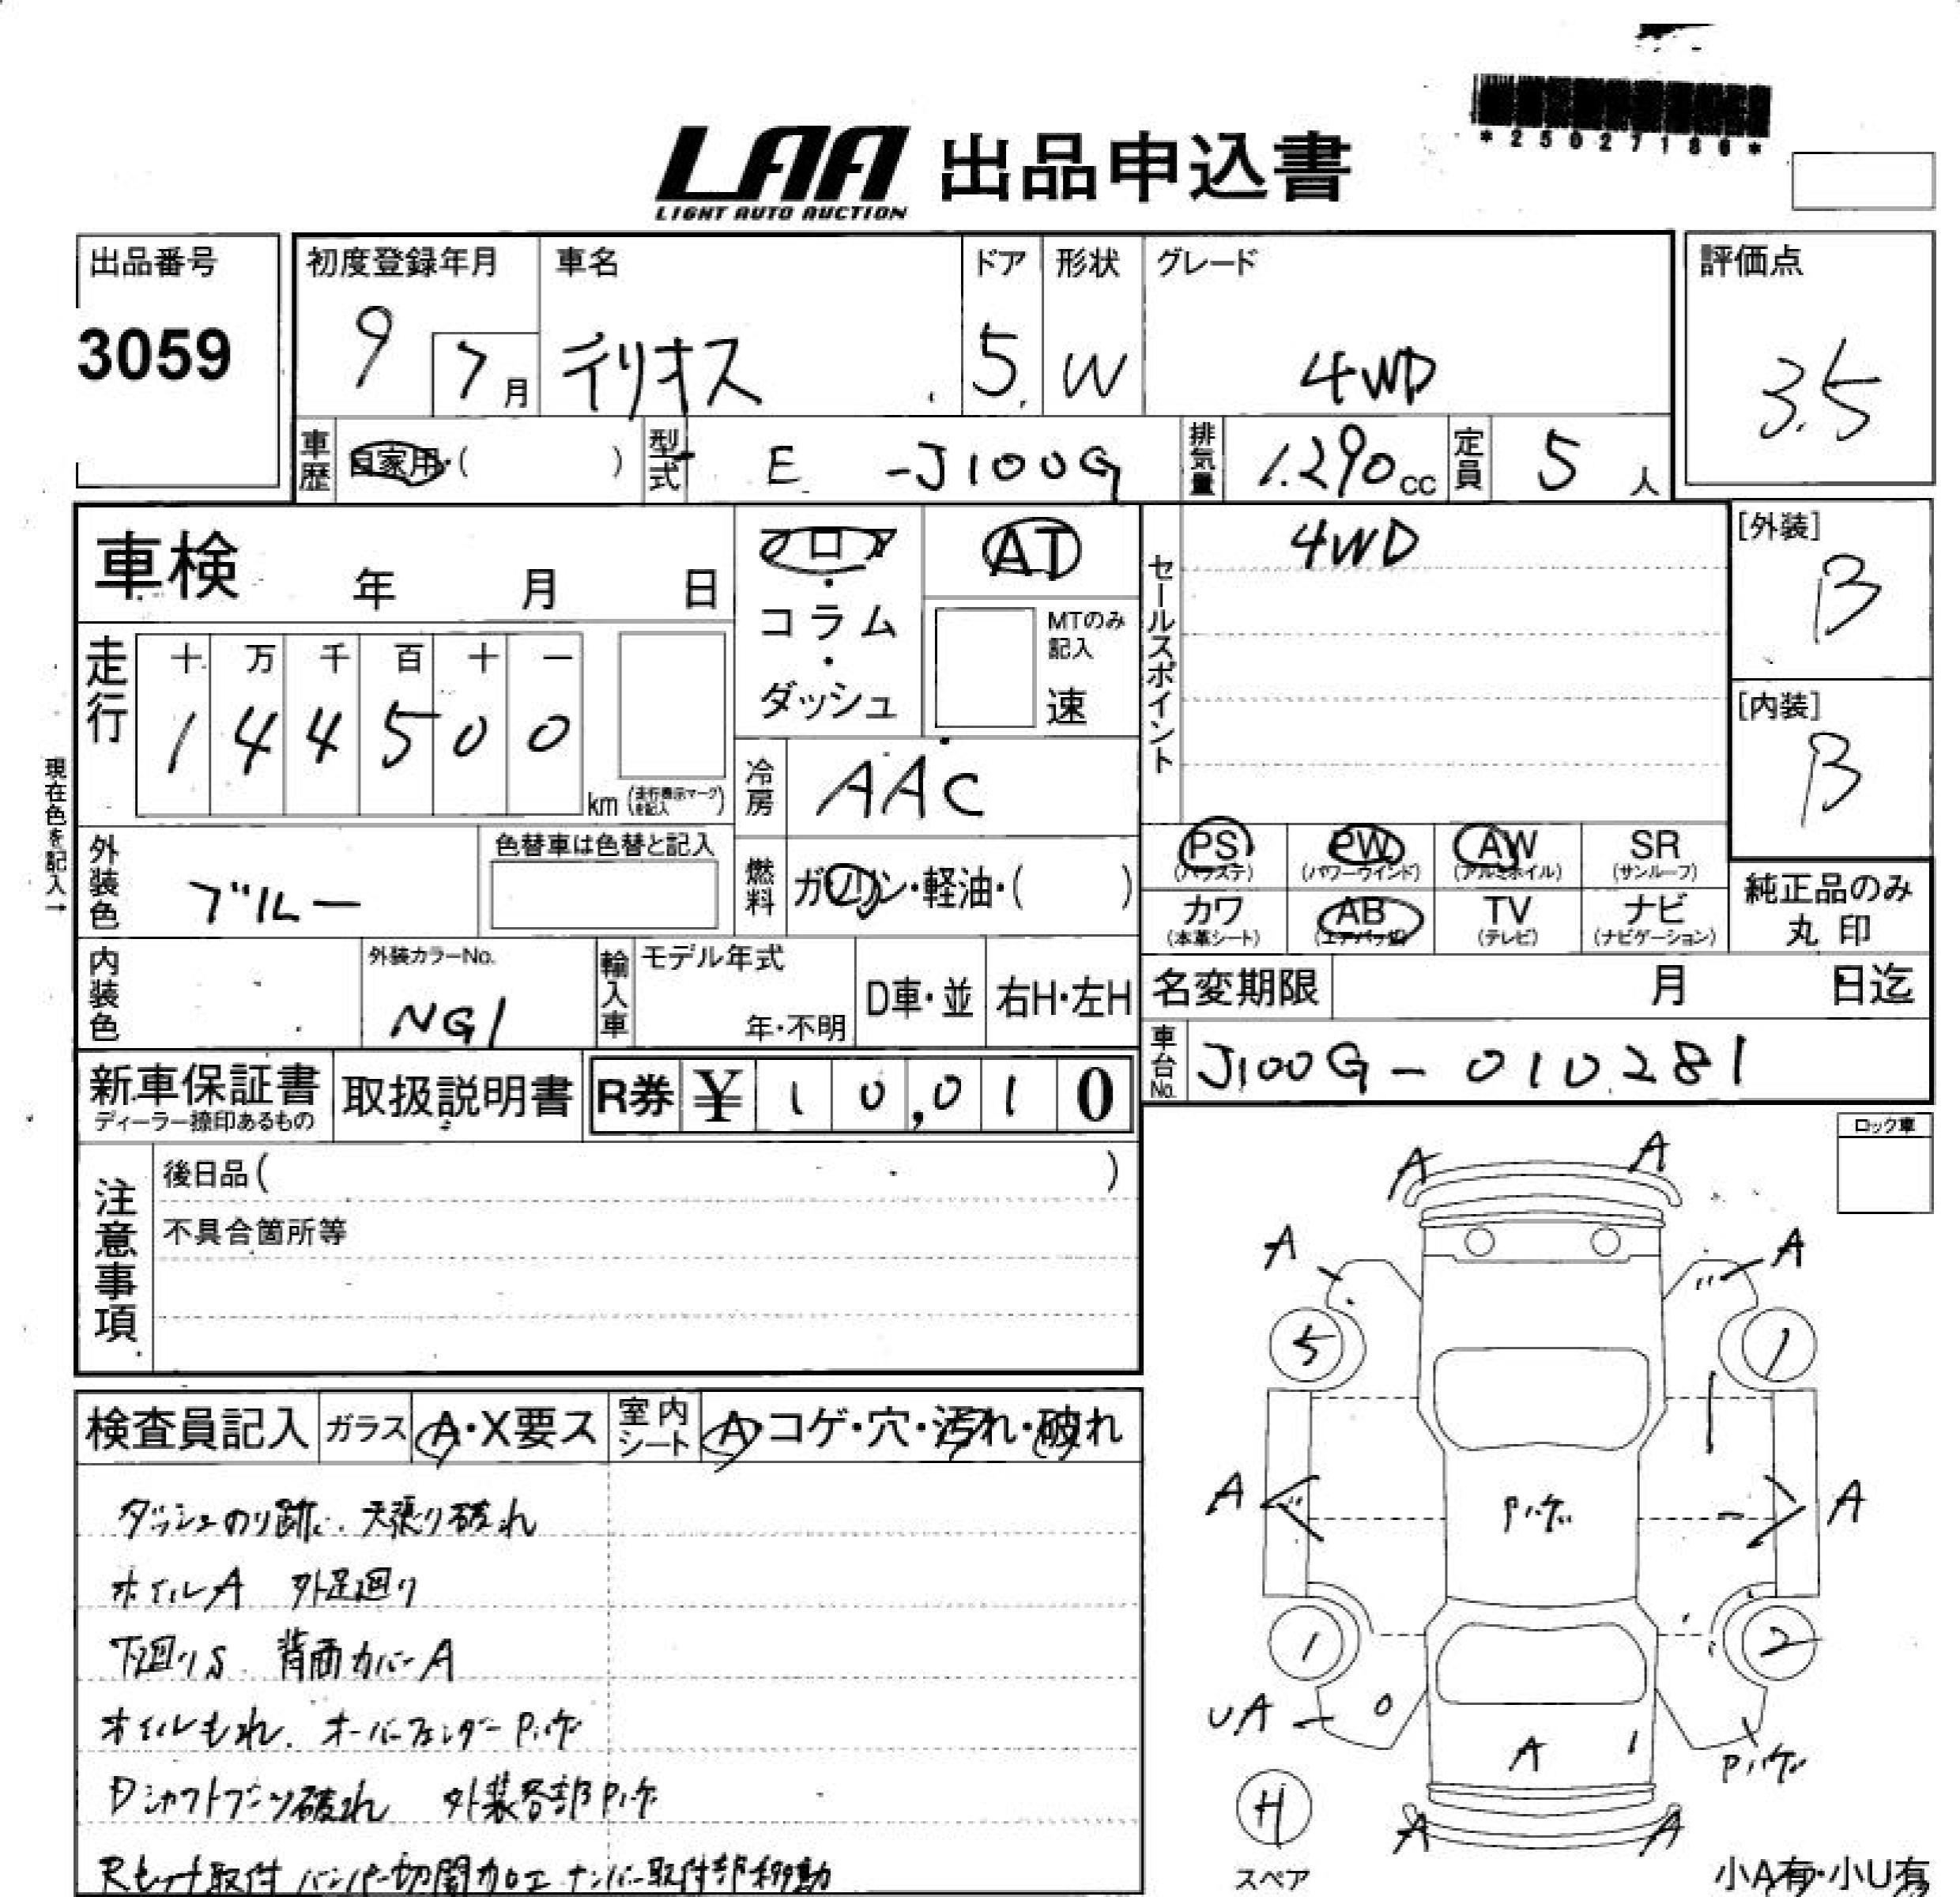 *25027186*
LAA 出品申込書
LIGHT AUTO AUCTION
出品番号 初度登録年月 車名 ドア 形状 グレード 評価点
3059 9 7月 テリオス 5 W 4WD 3.5
車歴 自家用・( ) 型式 E -J100G 排気量 1.290cc 定員 5人
車検 年 月 日 フロア・コラム・ダッシュ AT セールスポイント 4WD [外装] B
MTのみ記入 速
走行 十 万 千 百 十 一
1 4 4 5 0 0 km (走行表示マークを記入) [内装] B
冷房 AAC
現在色を記入→
外装色 ブルー 色替車は色替と記入 燃料 ガソリン・軽油・( )
PS (パワステ) PW (パワーウインド) AW (アルミホイル) SR (サンルーフ)
カワ (本革シート) AB (エアバッグ) TV (テレビ) ナビ (ナビゲーション) 純正品のみ丸印
内装色 外装カラーNo. NG1 輸入車 モデル年式 年・不明 D車・並 右H・左H
名変期限 月 日迄
車台No. J100G-010281
新車保証書 ディーラー捺印あるもの 取扱説明書 R券 ¥ 10,010
ロック車
注意事項 後日品( )
不具合箇所等
検査員記入 ガラス A・X要ス 室内シート A・コゲ・穴・汚れ・破れ
ダッシュのり跡 天張り破れ
ホイルA 外足廻り
下廻りS 背面カバーA
オイルもれ オーバーフェンダーPハゲ
Dシャフトブーツ破れ 外装各部Pハゲ
Rヒッチ取付 バンパー切開加工 ナンバー取付部移動
A A
A A
5 1
A Pハゲ A
1 2
UA A Pハゲ
H
A A
スペア
小A有・小U有